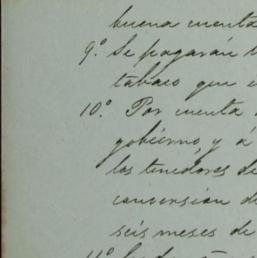 buena cuenta
9.º Se pagarán
tabaco que
10.º Por cuenta
gobierno, y á
los tenedores de
conversión de
seis meses de
11.º